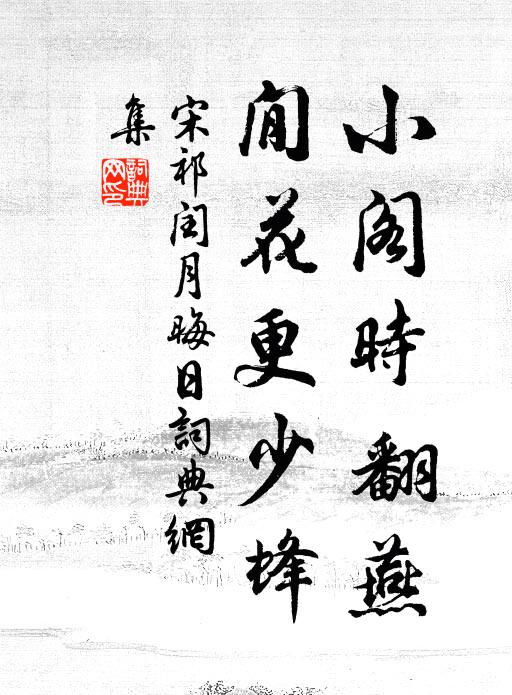 小閣時翻燕
閒花更少蜂
宋祁閏月晦日詞典網
集
詞典
网印